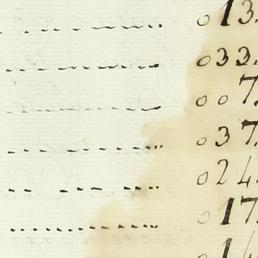 013.
033.
007.
037.
024.
017.